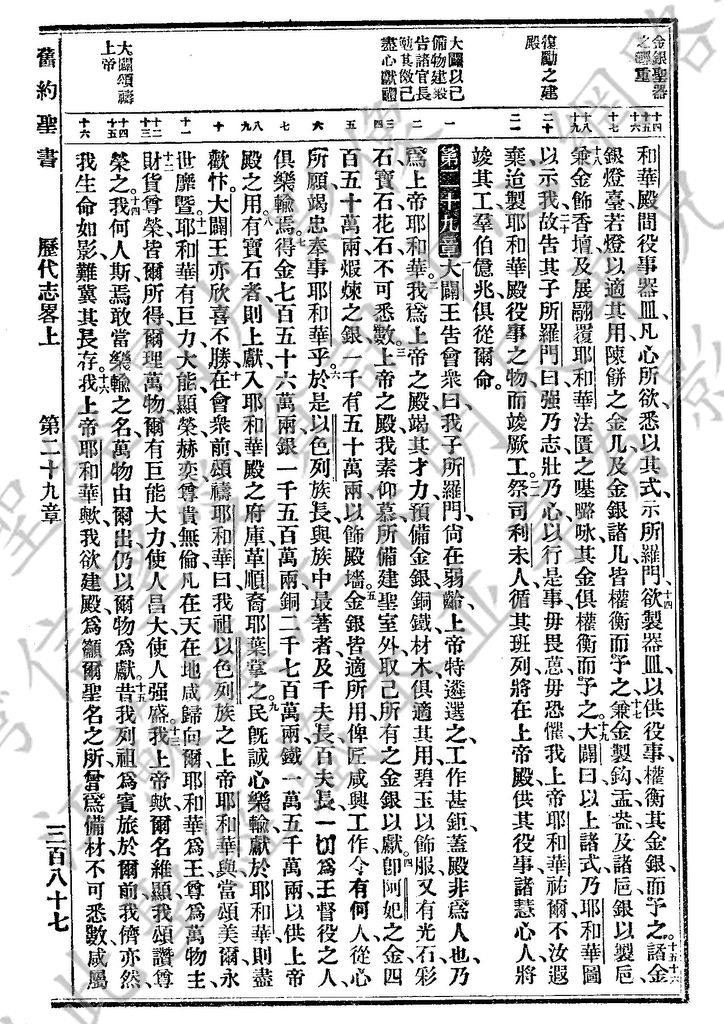 和華殿間役事器皿凡心所欲悉以其式示所羅門欲製器皿以供役事權衡其金銀而予之諸金
銀燈臺若燈以適其用陳餅之金几及金銀諸几皆權衡而予之兼金製鈎盂盎及諸巵銀以製巵
兼金飾香壇及展翮覆耶和華法匱之𠼻𡀔咏其金俱權衡而予之大闢曰以上諸式乃耶和華圖
以示我故告其子所羅門曰強乃志壯乃心以行是事毋畏葸毋恐懼我上帝耶和華祐爾不汝遐
棄迨製耶和華殿役事之物而竣厥工祭司利未人循其班列將在上帝殿供其役事諸慧心人將
竣其工羣伯億兆俱從爾命
第二十九章
大闢王告會衆曰我子所羅門尙在弱齡上帝特遴選之工作甚鉅蓋殿非爲人也乃
爲上帝耶和華我爲上帝之殿竭其才力預備金銀銅鐵材木俱適其用碧玉以飾服又有光石彩
石寶石花石不可悉數上帝之殿我素仰慕所備建聖室外取己所有之金銀以獻卽阿妃之金四
百五十萬兩煆煉之銀一千有五十萬兩以飾殿墻金銀皆適所用俾匠咸興工作今有何人從心
所願竭忠奉事耶和華乎於是以色列族長與族中最著者及千夫長百夫長一切爲王督役之人
俱樂輸焉得金七百五十六萬兩銀一千五百萬兩銅二千七百萬兩鐵一萬五千萬兩以供上帝
殿之用有寶石者則上獻入耶和華殿之府庫革順裔耶葉掌之民旣誠心樂輸獻於耶和華則盡
歡忭大闢王亦欣喜不勝在會衆前頌禱耶和華曰我祖以色列族之上帝耶和華與當頌美爾永
世靡曁耶和華有巨力大能顯榮赫奕尊貴無倫凡在天在地咸歸向爾耶和華爲王尊爲萬物主
財貨尊榮皆爾所得爾理萬物爾有巨能大力使人昌大使人強盛我上帝歟爾名維顯我頌讚尊
榮之我何人斯焉敢當樂輸之名萬物由爾出仍以爾物爲獻昔我列祖爲賓旅於爾前我儕亦然
我生命如影難冀其長存我上帝耶和華歟我欲建殿爲籲爾聖名之所曾爲備材不可悉數咸屬
金銀聖器之輕重
復勵之建殿
大闢以己備物建殿告諸官長勉其傚己盡心獻禮
大闢頌禱上帝
舊約聖書
歷代志畧上
第二十九章
三百八十七